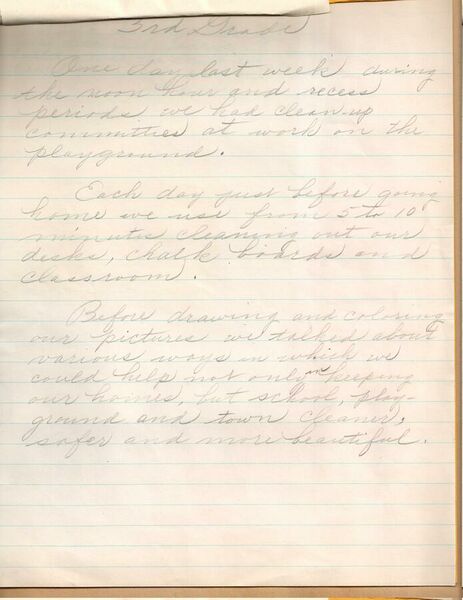 3rd Grade
One day last week during
the noon hour and recess
periods we had clean-up
committies at work on the
playground.
Each day just before going
home we use from 5 to 10
minutes cleaning out our
desks, chalk boards and
classroom.
Before drawing and coloring
our pictures we talked about
various ways in which we
could help not only in keeping
our homes, but school, play-
ground and town cleaner,
safer and more beautiful.